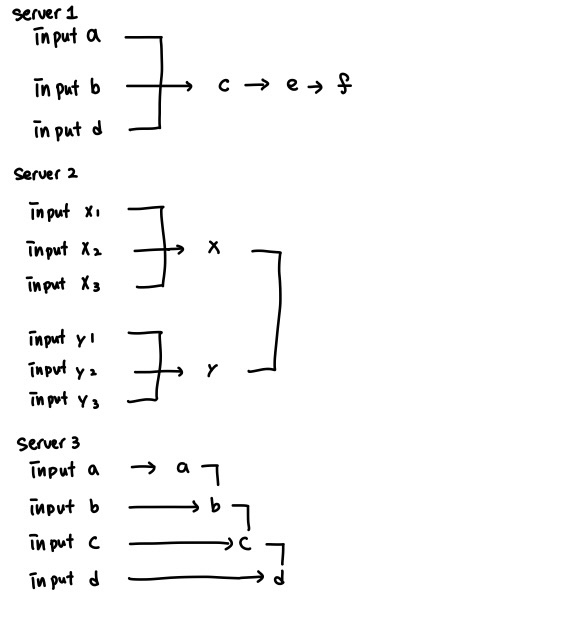 Server 1
input a
input b → c → e → f
input d
Server 2
input x1
input x2 → x
input x3
input y1
input y2 → Y
input y3
Server 3
input a → a
input b → b
input c → c
input d → d